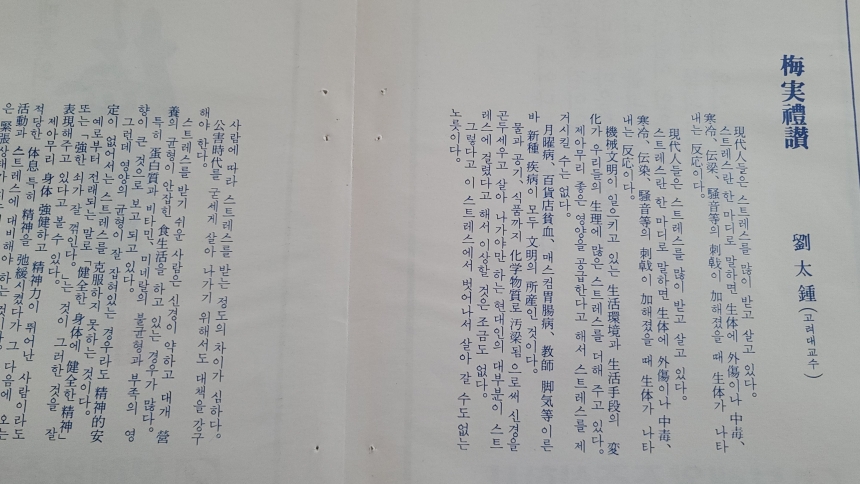 梅実禮讃
劉太鍾(고려대교수)
現代人들은 스트레스를 많이 받고 살고 있다.
스트레스란 한 마디로 말하면 生体에 外傷이나 中毒、
寒冷、伝染、騷音等의 刺戟이 加해졌을 때 生体가 나타
내는 反応이다.
現代人들은 스트레스를 많이 받고 살고 있다.
스트레스란 한 마디로 말하면 生体에 外傷이나 中毒、
寒冷、伝染、騷音等의 刺戟이 加해졌을 때 生体가 나타
내는 反応이다.
機械文明이 일으키고 있는 生活環境과 生活手段의 変
化가 우리들의 生理에 많은 스트레스를 더해 주고 있다.
제아무리 좋은 영양을 공급한다고 해서 스트레스를 제
거시킬 수는 없다.
月曜病、百貨店貧血、매스컴胃腸病、教師 脚気等 이른
바 新種 疾病이 모두 文明의 所産인 것이다.
물과 공기、식품까지 化学物質로 汚染됨으로써 신경을
곤두세우고 살아 나가야만 하는 현대인의 대부분이 스트
레스에 걸렸다고 해서 이상할 것은 조금도 없다.
그렇다고 이 스트레스에서 벗어나서 살아 갈 수도 없는
노릇이다.
사람에 따라 스트레스를 받는 정도의 차이가 심하다.
公害時代를 굳세게 살아 나가기 위해서도 대책을 강구
해야 한다.
스트레스를 받기 쉬운 사람은 신경이 약하고 대개 営
養의 균형이 안잡힌 食生活을 하고 있는 경우가 많다.
특히 蛋白質과 비타민、미네랄의 불균형과 부족의 영
향이 큰 것으로 보고 되고 있다.
그런데 영양의 균형이 잘 잡혀있는 경우라도 精神的 安
定이 없어서는 스트레스를 克服하지 못하는 것이다.
예로부터 전래되는 말로「健全한 身体에 健全한 精神」
또는「強한 쇠가 잘 꺾인다。」는 것이 그러한 것을 잘
表現해주고 있다고 볼 수 있다.
제아무리 身体 強健하고 精神力이 뛰어난 사람이라도
적당한 体息 특히 精神을 弛緩시켰다가 그 다음에 오는
活動과 스트레스에 대비해야 하는 것이다.
은 緊張상태가